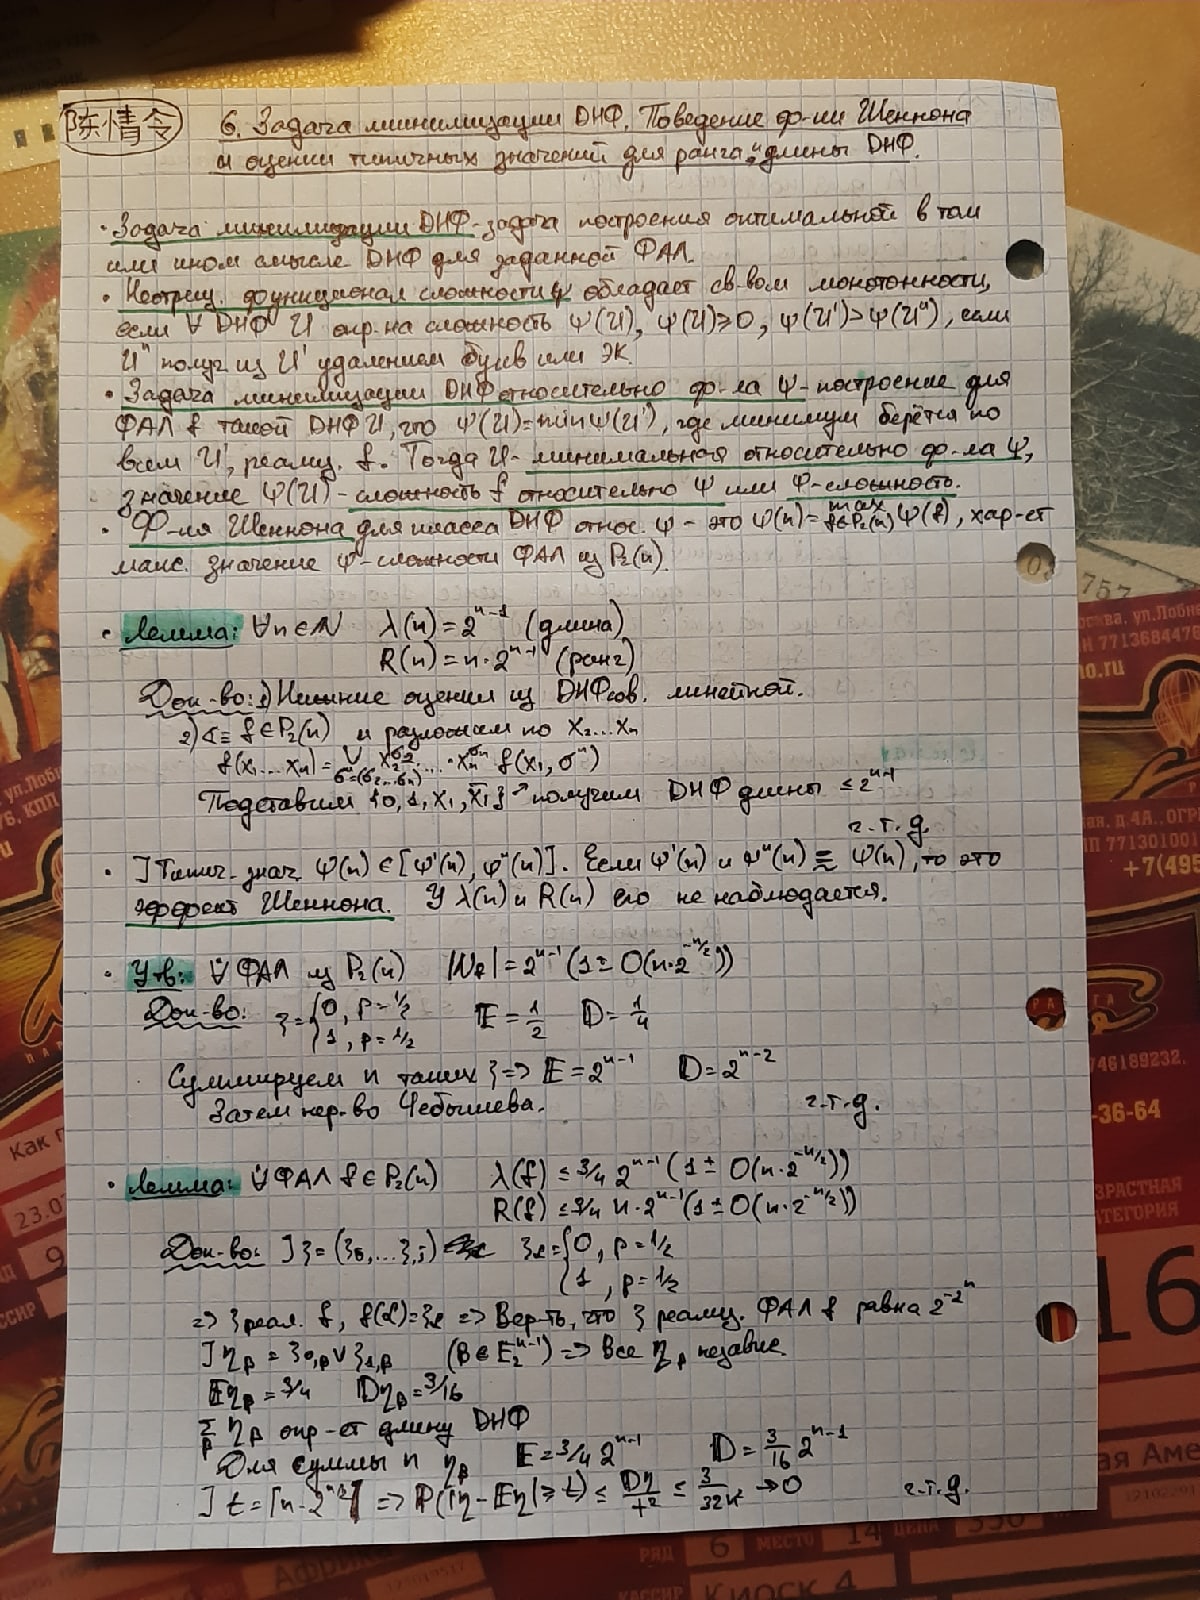 陈情令
6. Задача минимизации ДНФ. Поведение ф-ии Шеннона
и оценки типичных значений для ранга и длины ДНФ.
• Задача минимизации ДНФ - задача построения оптимальной в том
или ином смысле ДНФ для заданной ФАЛ.
• Неотриц. функционал сложности ψ обладает св-вом монотонности,
если ∀ ДНФ U опр-на сложность ψ(U), ψ(U)≥0, ψ(U')>ψ(U''), если
U'' получ из U' удалением букв или ЭК.
• Задача минимизации ДНФ относительно ф-ла ψ - построение для
ФАЛ f такой ДНФ U, что ψ(U)=min ψ(U'), где минимум берётся по
всем U', реализ. f. Тогда U - минимальная относительно ф-ла ψ,
значение ψ(U) - сложность f относительно ψ или ψ-сложность.
• Ф-ия Шеннона для класса ДНФ относ. ψ - это ψ(n)= max f∈P₂(n) ψ(f), хар-ет
макс. значение ψ-сложности ФАЛ из P₂(n).
• Лемма: ∀n∈N λ(n)=2ⁿ⁻¹ (длина)
R(n)=n·2ⁿ⁻¹ (ранг)
Док-во: 1) Нижние оценки из ДНФ сов. линейной.
2) f∈P₂(n) и разложим по x₂...xₙ
f(x₁...xₙ)= ∨ σ''=(σ₂...σₙ) x₂^σ₂·...·xₙ^σₙ f(x₁,σ'')
Подставим {0,1,x₁,x̄₁} → получим ДНФ длины ≤2ⁿ⁻¹
ч.т.д.
• ] Типич. знач. ψ(n)∈[ψ'(n), ψ''(n)]. Если ψ'(n) и ψ''(n) ≅ ψ(n), то это
эффект Шеннона. У λ(n) и R(n) его не наблюдается.
• Утв: ∀̈ ФАЛ из P₂(n) |N_f|=2ⁿ⁻¹(1±O(n·2^(-n/2)))
Док-во: ξ={0, p=1/2 E=1/2 D=1/4
1, p=1/2
Суммируем n таких ξ => E=2ⁿ⁻¹ D=2ⁿ⁻²
Затем нер-во Чебышева. ч.т.д.
• Лемма: ∀̈ ФАЛ f∈P₂(n) λ(f) ≤ 3/4 2ⁿ⁻¹(1±O(n·2^(-n/2)))
R(f) ≤ 3/4 n·2ⁿ⁻¹(1±O(n·2^(-n/2)))
Док-во: ] ξ=(ξ₀,...ξ₁) ξ_α={0, p=1/2
1, p=1/2
=> ξ реал. f, f(α)=ξ_α => Вер-ть, что ξ реализ. ФАЛ f равна 2^(-2ⁿ)
] η_β = ξ₀,β ∨ ξ₁,β (β∈E₂ⁿ⁻¹) => Все η_β независ.
Eη_β = 3/4 Dη_β = 3/16
Σ_β η_β опр-ет длину ДНФ
Для суммы n η_β E=3/4 2ⁿ⁻¹ D=3/16 2ⁿ⁻¹
] t=⌈n·2^(n/2)⌉ => P(|η-Eη|≥t) ≤ Dη/t² ≤ 3/32n² → 0 ч.т.д.
757
+7(495
746189232.
-36-64
ЗРАСТНАЯ
АТЕГОРИЯ
16
23.0
РЯД 6 МЕСТО 14 ЦЕНА 350
КАССИР КИОСК 4